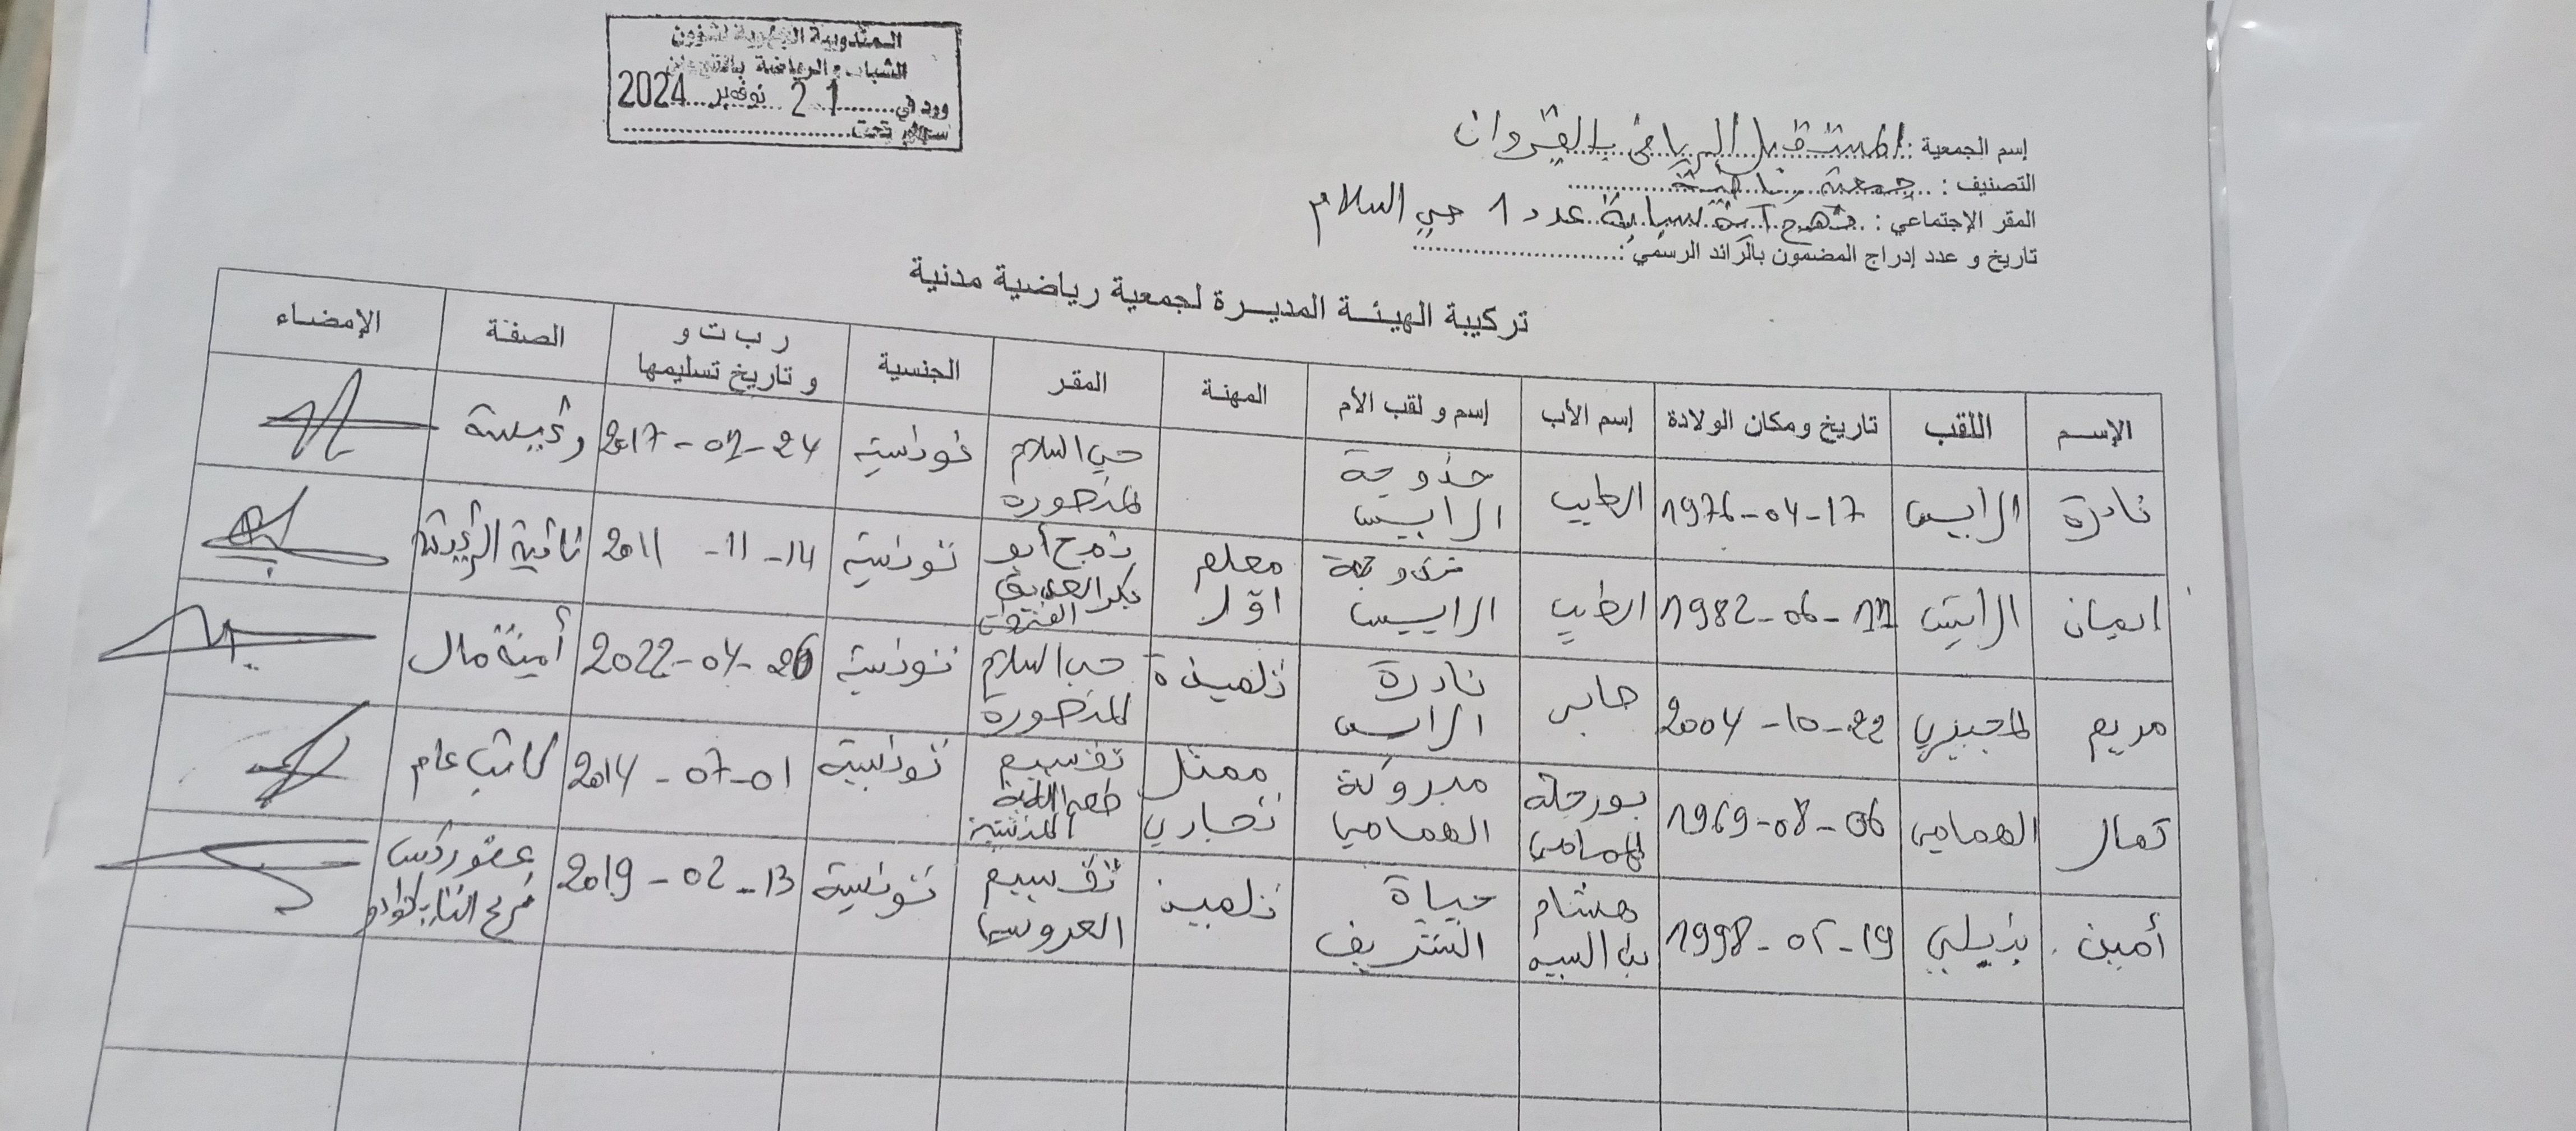 المندوبية الجهوية لشؤون
الشباب والرياضة بالقيروان
ورد في ........ 21 نوفمبر 2024
سجل تحت ........
إسم الجمعية : المستقبل الرياضي بالقيروان
التصنيف : جمعية رياضية
المقر الإجتماعي : نهج آية سبابة عدد 1 حي السلام
تاريخ و عدد إدراج المضمون بالرائد الرسمي :
تركيبة الهيئة المديرة لجمعية رياضية مدنية
الإسم اللقب تاريخ ومكان الولادة إسم الأب إسم و لقب الأم المهنة المقر الجنسية ر ب ت و الصفة الإمضاء
و تاريخ تسليمها
نادرة الرايس 17-04-1976 الطيب خدوجة حي السلام تونسية 24-07-2017 رئيسة
الرايس المنصورة
ايمان الرايس 11-06-1982 الطيب خدوجة معلم نهج أبو تونسية 14-11-2011 نائبة الرئيسة
الرايس اول بكر الصديق
مريم 22-10-2004 نادرة تلميذة حي السلام تونسية 26-04-2022 أمينة مال
الرايس المنصورة
الهمامي 06-08-1969 بورحلة مبروكة ممثل تقسيم تونسية 01-07-2014 كاتب عام
الهمامي الهمامي تجاري
أمين 19-05-1998 هشام حياة تلميذ تقسيم تونسية 13-02-2019
الشريف